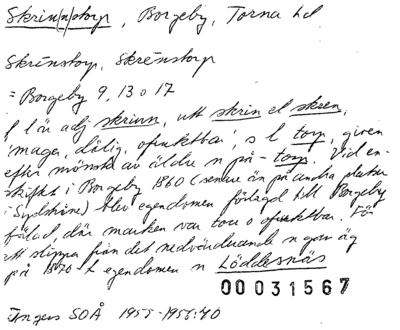 Skrin(n)storp, Borgeby, Torna hd
Skrinstorp, Skrenstorp
= Borgeby 9, 13 o 17
f l är adj skrinn, utt skrin el skren,
'mager, dålig, ofruktbar', s l torp, given
efter mönster av äldre n på -torp. Vid en-
skiftet i Borgeby 1860 (senare än på andra platser
i Sydskåne) blev egendomen förlagd till Borgeby
fälad, där marken var torr o ofruktbar. För
att slippa från det nedvärderande n gav äg
på 1870-t egendomen n Löddesnäs
00031567
Ingers SOÅ 1955-1956:40